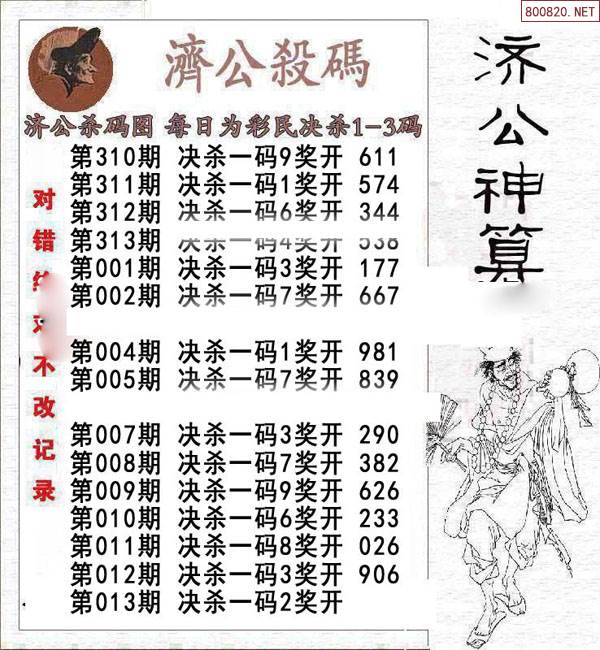 800820.NET
濟公殺碼
济公杀码图 每日为彩民决杀1-3码
第310期 决杀一码9奖开 611
第311期 决杀一码1奖开 574
第312期 决杀一码6奖开 344
第313期 决杀一码4奖开 538
第001期 决杀一码3奖开 177
第002期 决杀一码7奖开 667
第004期 决杀一码1奖开 981
第005期 决杀一码7奖开 839
第007期 决杀一码3奖开 290
第008期 决杀一码7奖开 382
第009期 决杀一码9奖开 626
第010期 决杀一码6奖开 233
第011期 决杀一码8奖开 026
第012期 决杀一码3奖开 906
第013期 决杀一码2奖开
对错
不改记录
济公神算